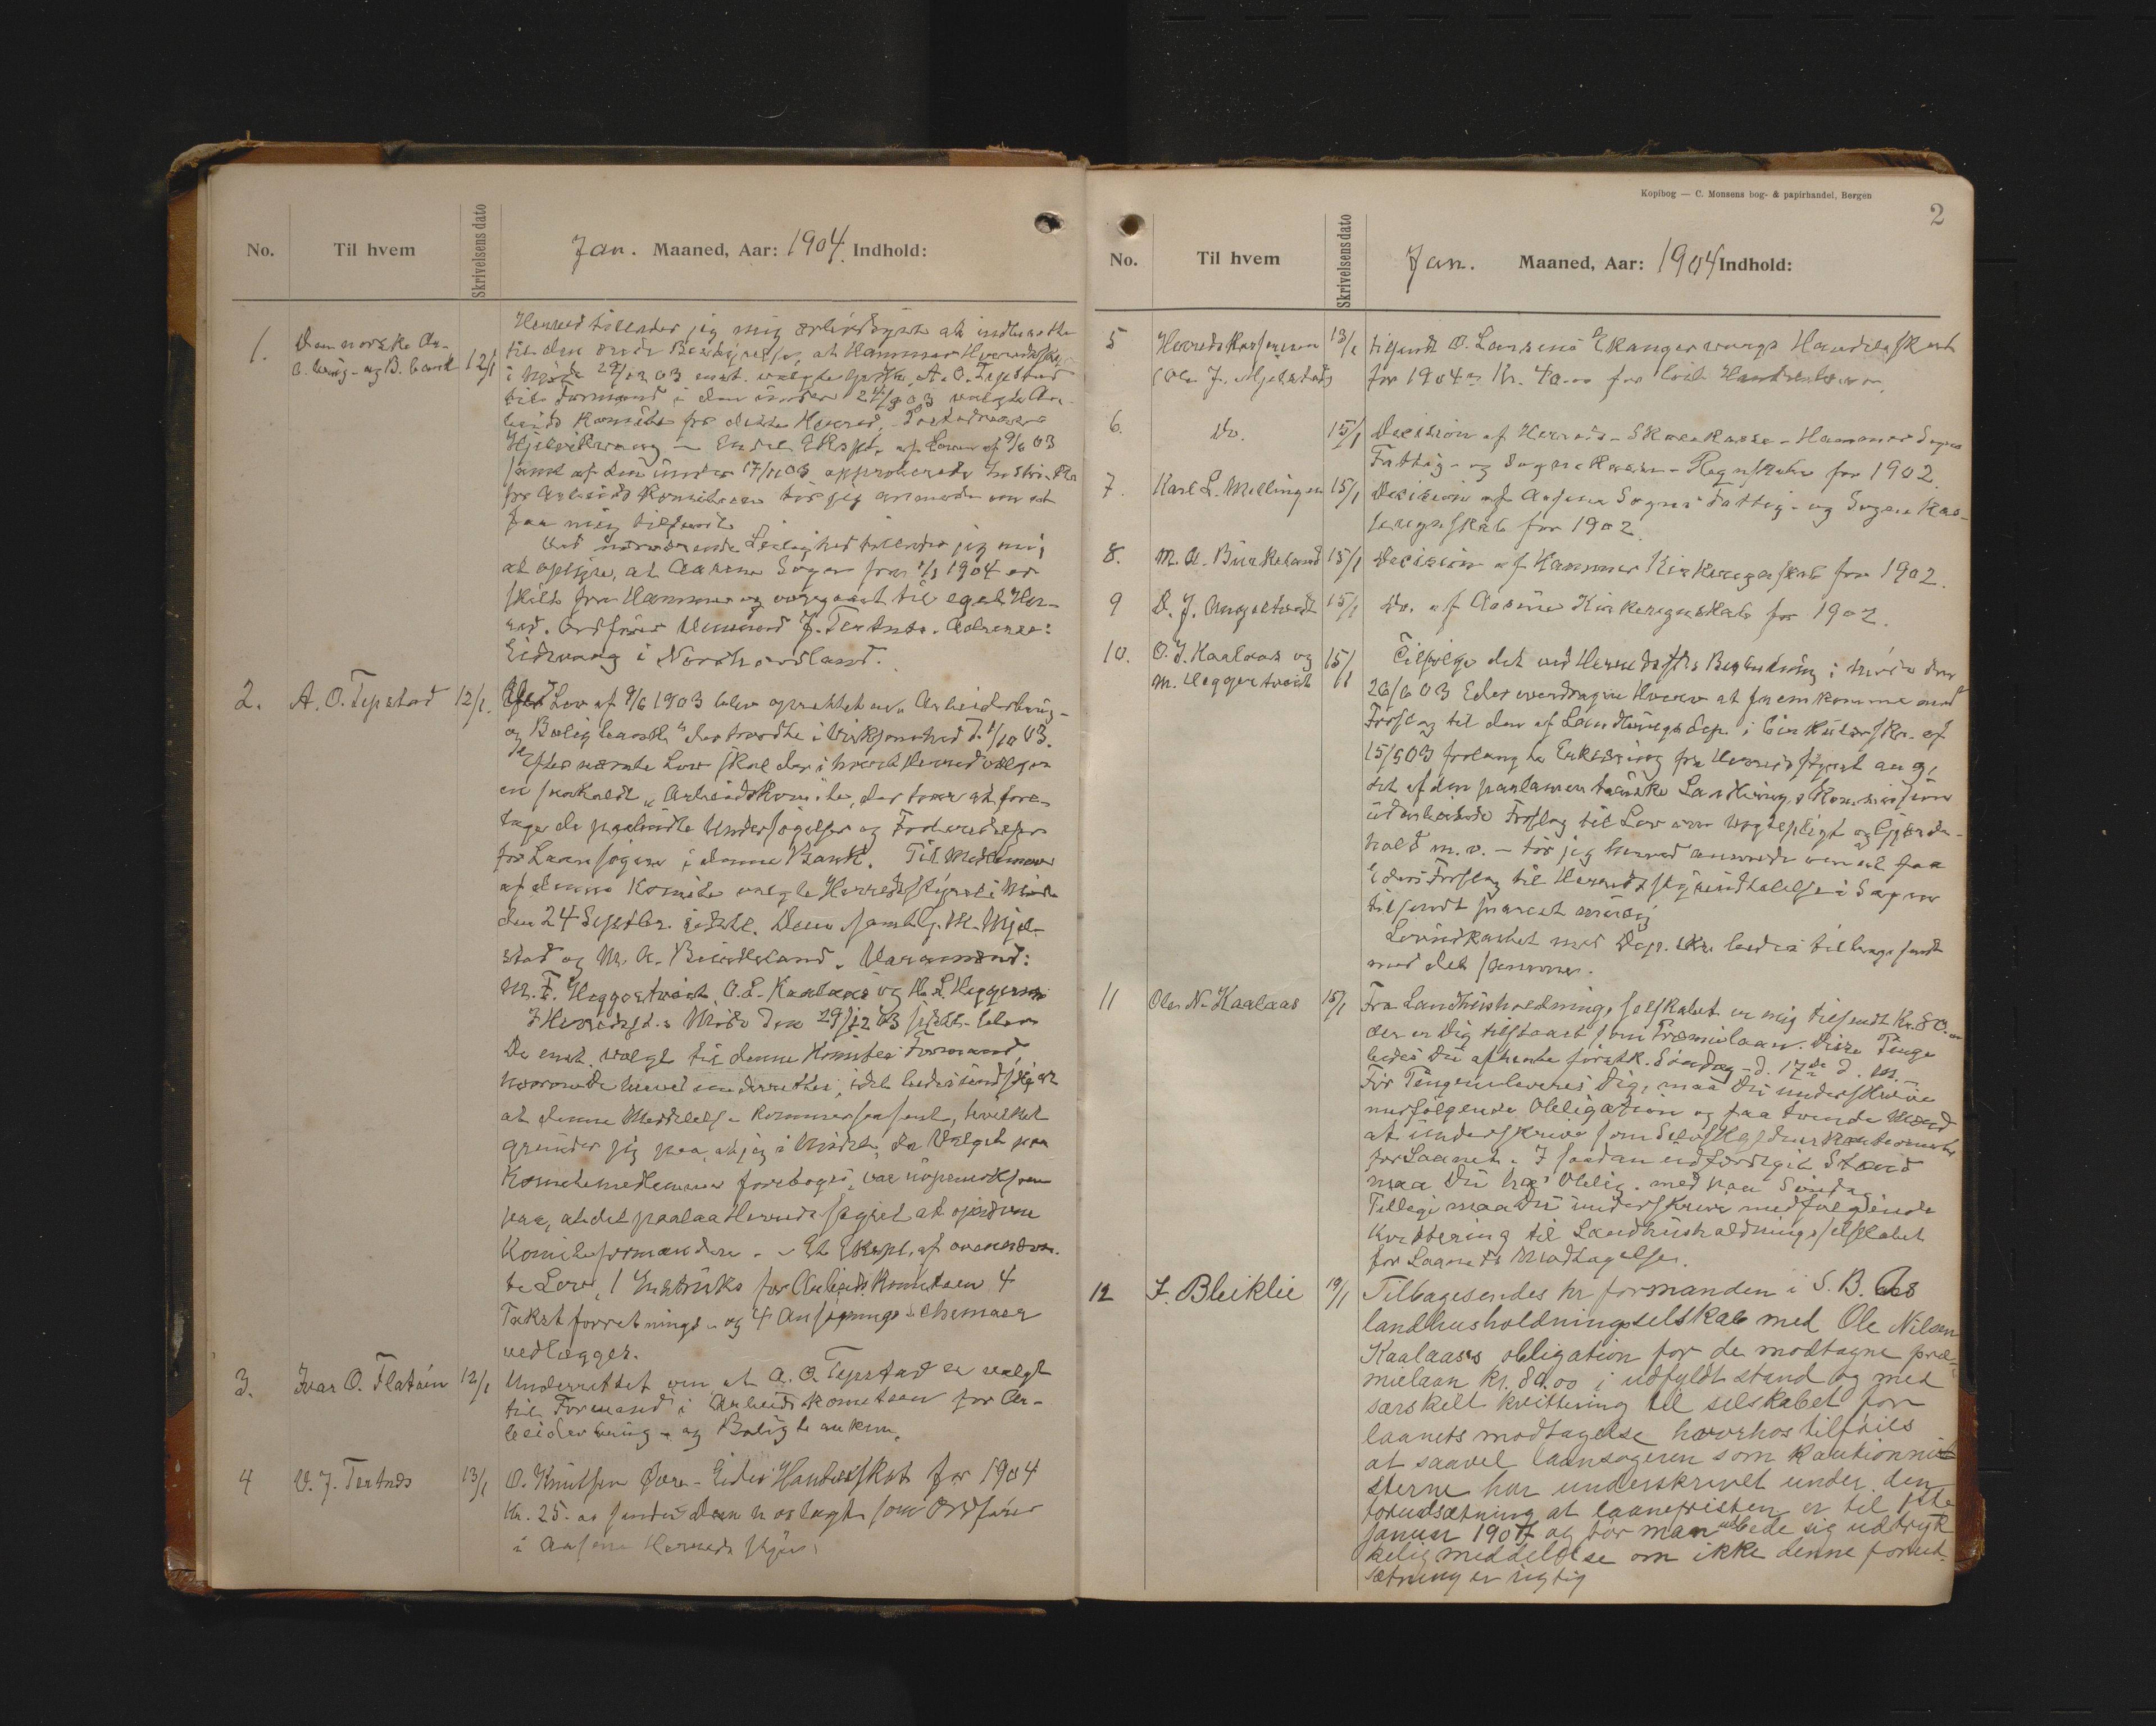 Kopibog — C. Monsens bog- & papirhandel, Bergen
2
No. Til hvem Skrivelsens dato Jan. Maaned, Aar: 1904 Indhold:
1. Den norske Ar-
b.brug- og B.bank 12/1
Herved tillader jeg mig ærbødigst at indberette
til den ærede Bestyrelse, at Hammer Herredsst.
i Møde 29/12 03 enst. valgte A. O. Tepstad
til Formand i den under 24/9 03 valgte Ar-
beids Komite for dette Herred, Postadresse
Hjelvikvaag – Endel Expl. af Loven af 9/6 03
samt af den under 17/11 03 approberede Instruks
for Arbeids Komiteen tør jeg anmode om at
faa mig tilsendt
Ved nærværende Leilighed tillader jeg mig
at oplyse, at Aasene Sogn fra 1/1 1904 er
skilt fra Hammer og overgaaet til eget Her-
red. Ordfører J. Tertnes. Adresse:
Eidsvaag i Nordhordland.
2. A. O. Tepstad 12/1.
Ved Lov af 9/6 1903 blev oprettet en „Arbeiderbrug-
og Boligbank" der traadte i Virksomhed d. 1/10 03.
Efter nævnte Lov skal der i hvert Herred vælges
en saakaldt „Arbeidskomite, der har at fore-
tage de paabudte Undersøgelser og Forberedelser
for Laansøgere i denne Bank. Til Medlemmer
af denne Komite valgte Herredsstyret i Møde
den 24 Septbr. sidstl. Dem samt M. Mjel-
stad og M. A. Birkeland. Varamænd:
M. F. Heggertveit, O. L. Kaalaas og
I Herredsst.s Møde den 29/12 03 sidstl. blev
De enst. valgt til denne Komites Formand,
hvorom De herved underrettes, idet
at denne Meddelelse kommer saa sent, hvilket
grunder sig paa, at jeg i Mødet, da Valget paa
Komitemedlemmer foretoges, var uopmerksom
paa, at det paalaa Herredsstyret at opnævne
Komiteformanden. – Et Expl. af ovennævn-
te Lov, 1 Instruks for Arbeids Komiteen 4
Takstforretnings- og 4 Ansøgnings-schemaer
vedlægges.
3. Ivar O. Flatøen 12/1
Underrettet om at A. O. Tepstad er valgt
til Formand i Arbeidskomiteen for Ar-
beiderbrug- og Boligbanken.
4 O. J. Tertnes 13/1
O. Knutsen Øvre-Eides Handelsskat for 1904
Kr. 25.00 sendes Dem som Ordfører
i Aasene Herredsstyre.
No. Til hvem Skrivelsens dato Jan. Maaned, Aar: 1904 Indhold:
5 Herredskassereren 13/1
(Ole J. Mjelstad)
tilsendt O. Larsens Ekangervaags Handelsskat
for 1904 Kr. 40.00 for
6. Do. 15/1
Decision af Herreds-Skolekasse-Hammer Sogns
Fattig- og Sognekasse-Regnskaber for 1902.
7. Karl L. Mellingen 15/1
Decision af Aasene Sogns Fattig- og Sognekas-
seregnskab for 1902.
8. M. A. Birkeland 15/1 Decision af Hammer Kirkeregnskab for 1902.
9 D. J. Angeltveit 15/1 Do. af Aasene Kirkeregnskab for 1902.
10. O. J. Kaalaas og 15/1
M. Heggertveit
Tilfølge det ved Herredsst.s Beslutning i Møde den
26/6 03 Eder overdragne Hverv at fremkomme med
Forslag til den af Landbrugsdep. i Cirkulærskr. af
15/5 03 forlangte Erklæring fra Herredsstyret ang.
det af den parlamentariske Landbrugskommission
udarbeidede Forslag til Lov om Vogtepligt og Gjerde-
hold m.v. – tør jeg herved anmode om at faa
Eders Forslag til Herredsstyreudtalelse i Sagen
tilsendt snarest muligt
Lovudkastet med Dep. skr. bedes tilbagesendt
med det samme.
11 Ole N. Kaalaas 15/1
Fra Landhusholdningsselskabet er mig tilsendt Kr. 80.00
der er Dig tilstaaet som Præmielaan. Disse Penge
bedes Du afhente førstk. Søndag d. 17de d. M.
Før Pengene leveres Dig, maa Du underskrive
medfølgende Obligation og faa tvende Mænd
at underskrive som Selvskyldnerkautionister
for Laanet. I saadan udfærdiget Stand
maa Du ha' Oblig. med paa Søndag.
Tillige maa Du underskrive medfølgende
Kvittering til Landhusholdningsselskabet
for Laanets Modtagelse.
12 J. Bleiklie 19/1
Tilbagesendes hr formanden i S. B. Als
landhusholdningsselskab med Ole Nilsen
Kaalaas's obligation for de modtagne præ-
mielaan kr. 80.00 i udfyldt stand og med
særskelt kvittering til selskabet for
laanets modtagelse hvorhos tilføies
at saavel laansøgeren som kautionni-
sterne har underskrivet under den
forudsætning at laanefristen er til 1ste
januar 1907 og tør man udbede sig udtryk-
kelig meddelelse om ikke denne forud-
sætning er rigtig